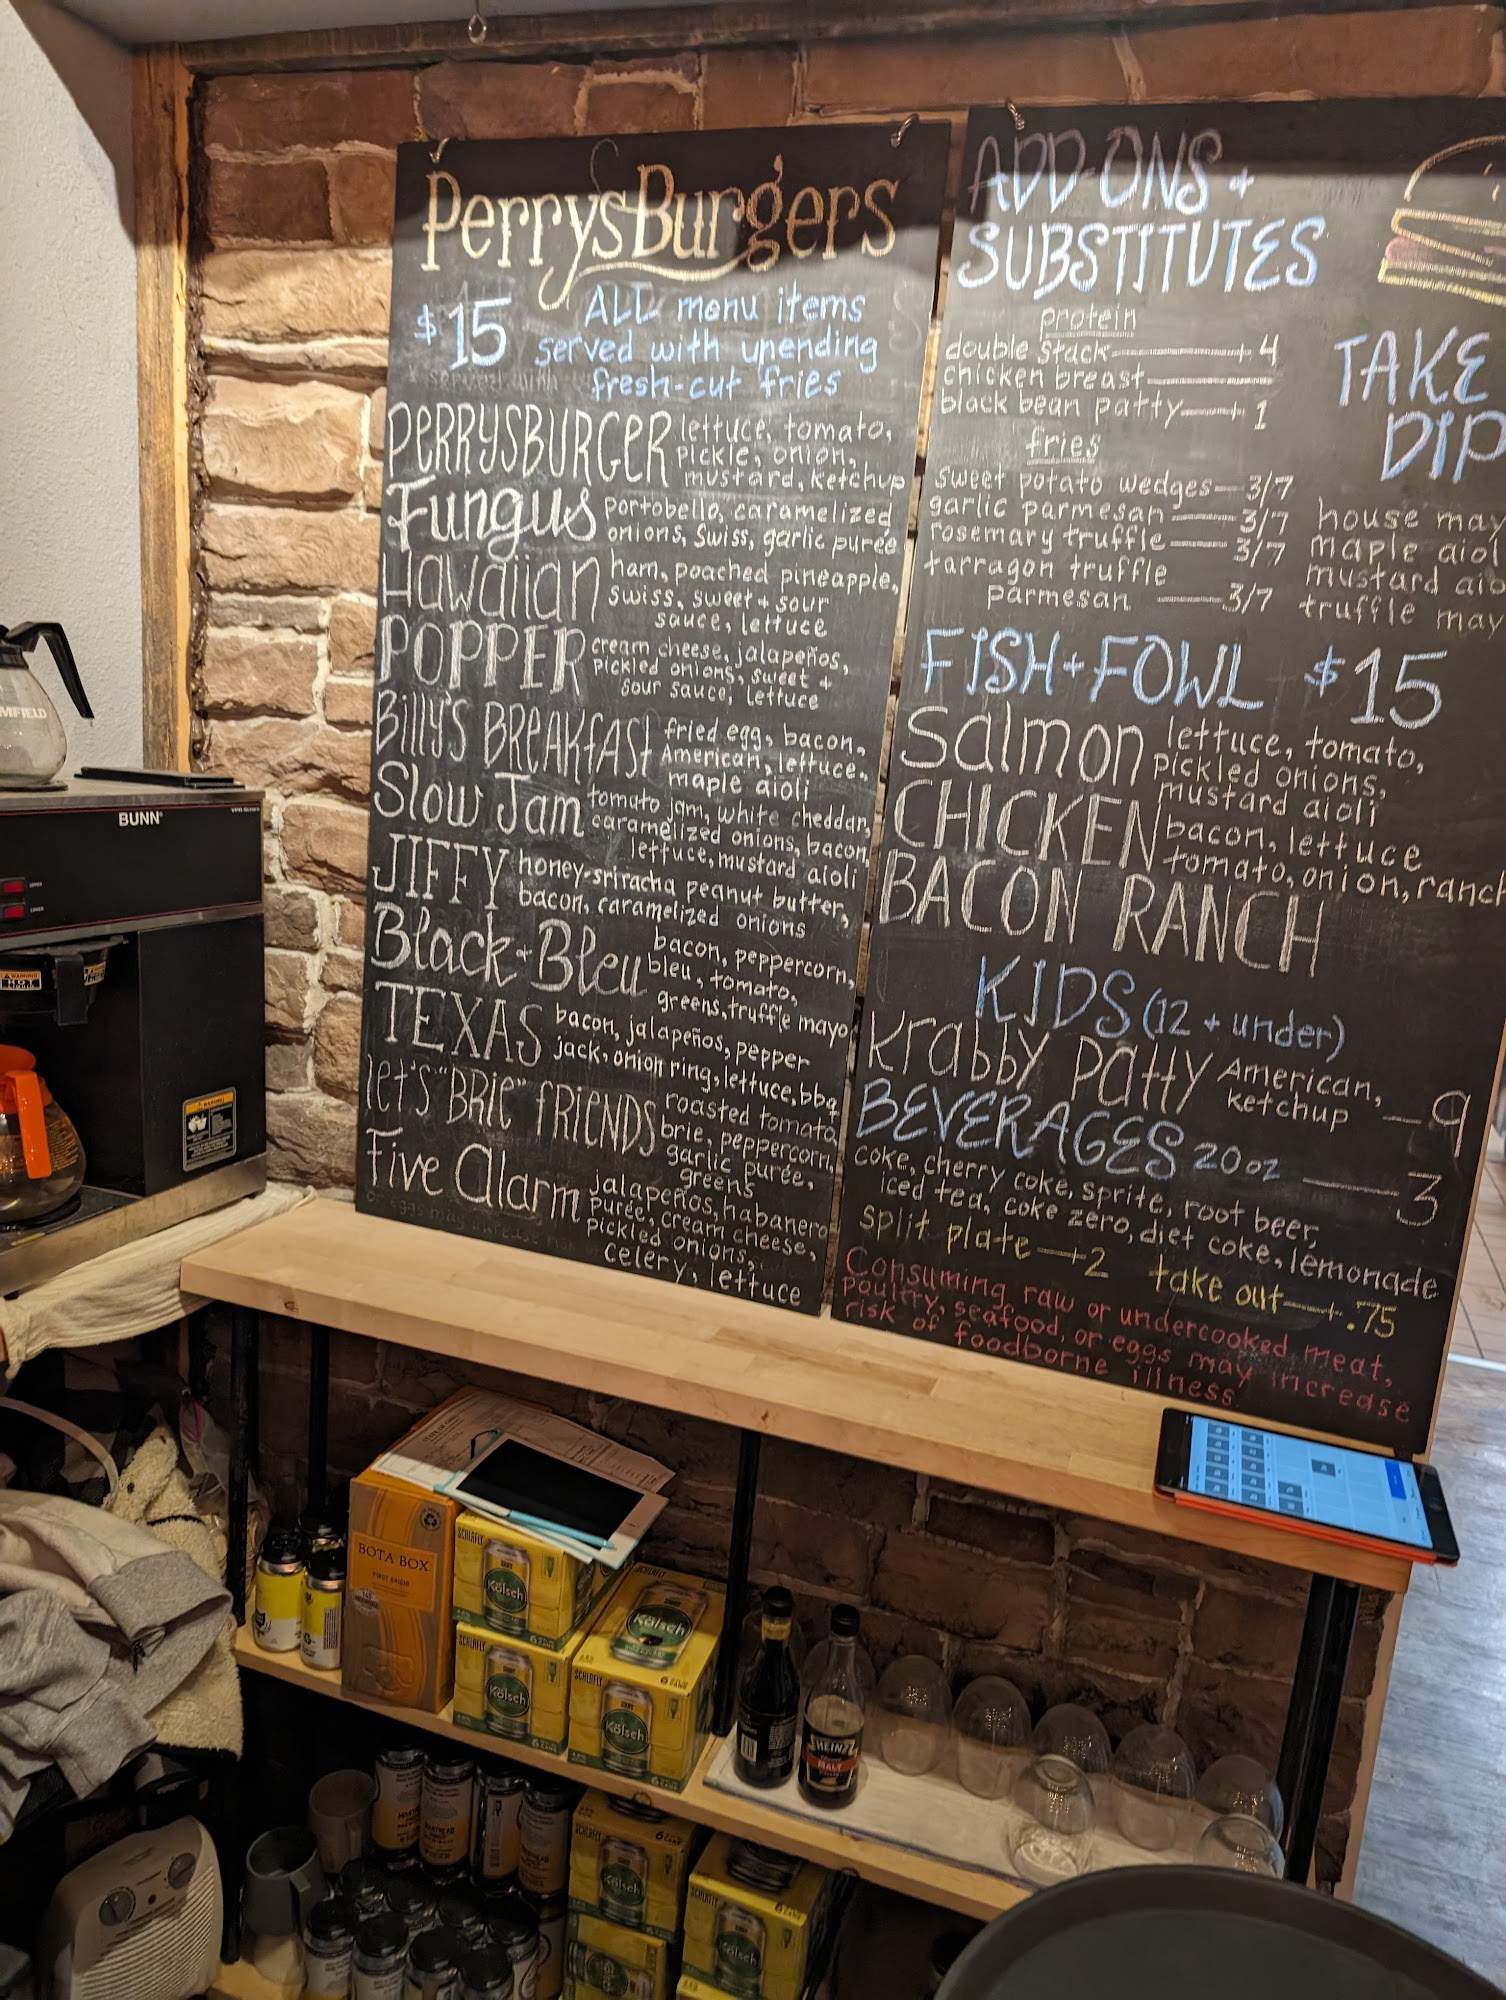 PerrysBurgers
$15
ALL menu items
served with unending
fresh-cut fries
PERRYSBURGER lettuce, tomato,
pickle, onion,
mustard, ketchup
Fungus portobello, caramelized
onions, Swiss, garlic purée
Hawaiian ham, poached pineapple,
swiss, sweet + sour
sauce, lettuce
POPPER cream cheese, jalapeños,
pickled onions, sweet +
sour sauce, lettuce
Billy's BREAKfASt fried egg, bacon,
American, lettuce,
maple aioli
Slow Jam tomato jam, white cheddar,
caramelized onions, bacon,
lettuce, mustard aioli
JIFFY honey-sriracha peanut butter,
bacon, caramelized onions
Black + Bleu bacon, peppercorn,
bleu, tomato,
greens, truffle mayo
TEXAS bacon, jalapeños, pepper
jack, onion ring, lettuce, bbq
let's "BRIE" fRIENDS roasted tomato,
brie, peppercorn,
garlic purée,
greens
Five Alarm jalapeños, habanero
purée, cream cheese,
pickled onions,
celery, lettuce
ADD-ONS +
SUBSTITUTES
protein
double stack + 4
chicken breast
black bean patty + 1
fries
sweet potato wedges 3/7
garlic parmesan 3/7
rosemary truffle 3/7
tarragon truffle
parmesan 3/7
TAKE
DIP
house may
maple aiol
mustard aio
truffle may
FISH + FOWL $15
Salmon lettuce, tomato,
pickled onions,
mustard aioli
CHICKEN bacon, lettuce
tomato, onion, ranch
BACON RANCH
KIDS (12 + under)
Krabby Patty American,
ketchup 9
BEVERAGES 20oz 3
coke, cherry coke, sprite, root beer,
iced tea, coke zero, diet coke, lemonade
split plate +2 take out +.75
Consuming raw or undercooked meat,
poultry, seafood, or eggs may increase
risk of foodborne illness
MFIELD
BUNN
WARNING
HOT
WARNING
BOTA BOX
PINOT GRIGIO
SCHLAFLY
Kölsch
Kölsch
Kölsch
Kölsch
SCHLAFLY
Kölsch
SCHLAFLY
Kölsch
HEINZ
MALT